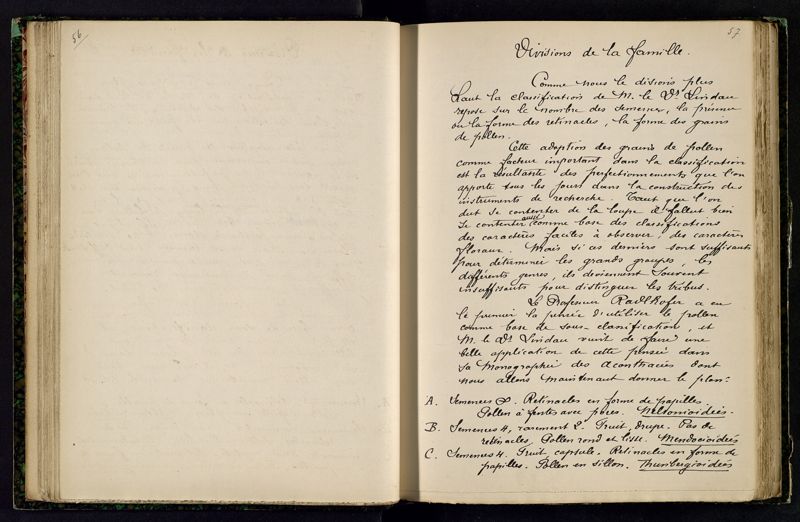 56
57
Divisions de la famille.
Comme nous le disions plus
haut la classification de M. le Dr Lindau
repose sur le nombre des semences, la présence
ou la forme des retinacles, la forme des grains
de pollen.
Cette adoption des grains de pollen
comme facteur important dans la classification
est la résultante des perfectionnements que l'on
apporte tous les jours dans la construction des
instruments de recherche. Tant que l'on
dut se contenter de la loupe il fallut bien
se contenter aussi comme base des classifications
des caractères faciles à observer, des caractères
floraux. Mais si ces derniers sont suffisants
pour déterminer les grands groupes, les
différents genres, ils deviennent souvent
insuffisants pour distinguer les tribus.
Le Professeur Radlkofer a eu
le premier la pensée d'utiliser le pollen
comme base de sous-classification, et
M. le Dr Lindau vient de faire une
belle application de cette pensée dans
sa monographie des Acantracées dont
nous allons maintenant donner le plan:
A. Semences ∞. Retinacles en forme de papilles.
Pollen à fentes avec pores. Nelsonioideés.
B. Semences 4, rarement 2. Fruit, drupe. Pas de
retinacles, Pollen rond et lisse. Mendoncioideés
C. Semences 4. Fruit capsule. Retinacles en forme de
papilles. Pollen en sillon. Thunbergioideés